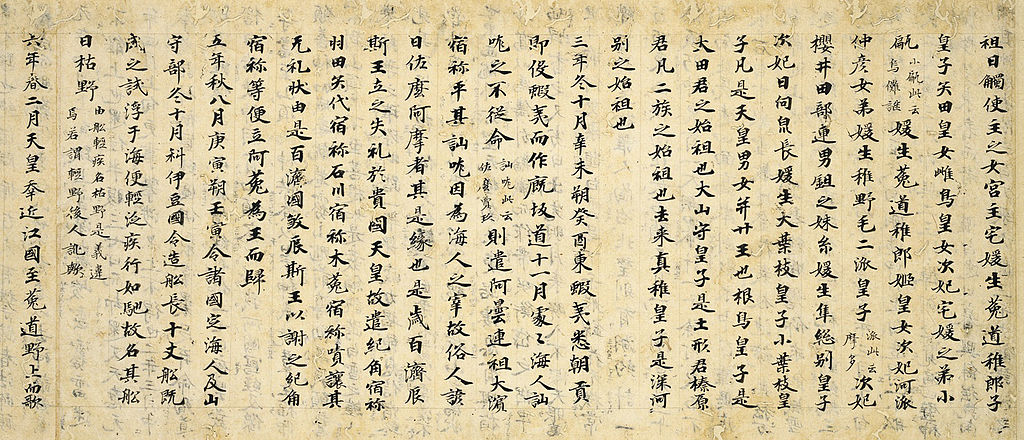 祖日觸使主之女宮主宅媛生菟道稚郎子
皇子矢田皇女雌鳥皇女次妃宅媛之弟小
甂小甂此云烏儺謎媛生菟道稚郎姫皇女次妃河派
仲彦女弟媛生稚野毛二派皇子派此云摩多次妃
櫻井田部連男鉏之妹糸媛生隼総別皇子
次妃日向泉長媛生大葉枝皇子小葉枝皇
子凡是天皇男女并廿王也根鳥皇子是
大田君之始祖也大山守皇子是土形君榛原
君凡二族之始祖也去来真稚皇子是深河
別之始祖也
三年冬十月辛未朔癸酉東蝦夷悉朝貢
即役蝦夷而作廐坂道十一月處〻海人訕
哤之不從命訕哤此云佐麼賣玖則遣阿曇連祖大濱
宿祢平其訕哤因為海人之宰故俗人諺
曰佐麼阿摩者其是縁也是歳百濟辰
斯王立之失礼於貴國天皇故遣紀角宿祢
羽田矢代宿祢石川宿祢木菟宿祢嘖讓其
无礼状由是百濟國敦辰斯王以謝之紀角
宿祢等便立阿菟為王而歸
五年秋八月庚寅朔壬寅令諸國定海人及山
守部冬十月科伊豆國令造舩長十丈舩既
成之試浮于海便輕泛疾行如馳故名其舩
曰枯野由舩輕疾名枯野是義違焉若謂輕野後人訛歟
六年春二月天皇幸近江國至菟道野上而歌